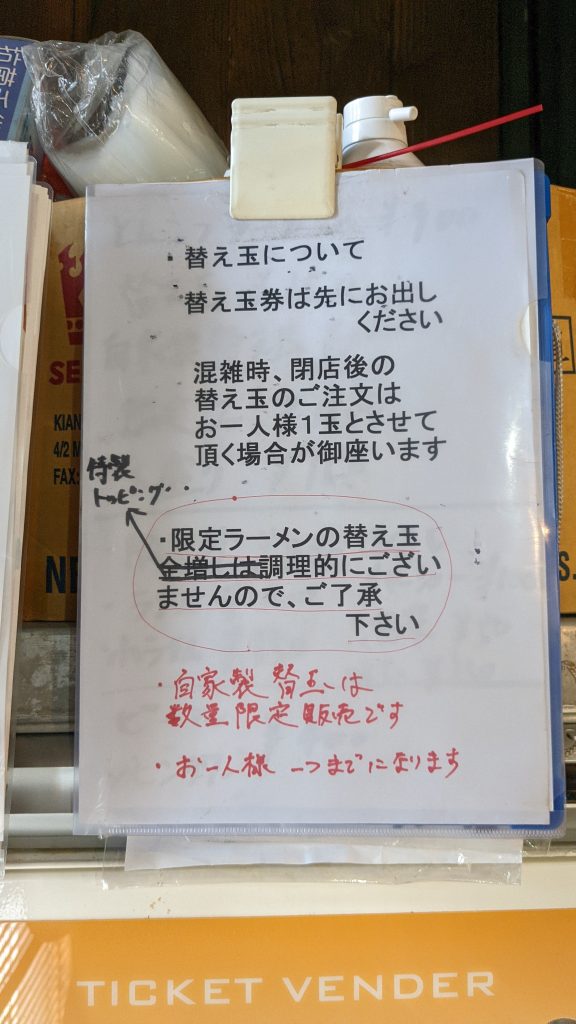 ・替え玉について
替え玉券は先にお出し
ください
混雑時、閉店後の
替え玉のご注文は
お一人様1玉とさせて
頂く場合が御座います
特製
トッピング
・限定ラーメンの替え玉
全増しは調理的にござい
ませんので、ご了承
下さい
・自家製替玉は
数量限定販売です
・お一人様 一つまでになります
SE
KIAN
4/2 M
FAX:
NE
S.
TICKET VENDER